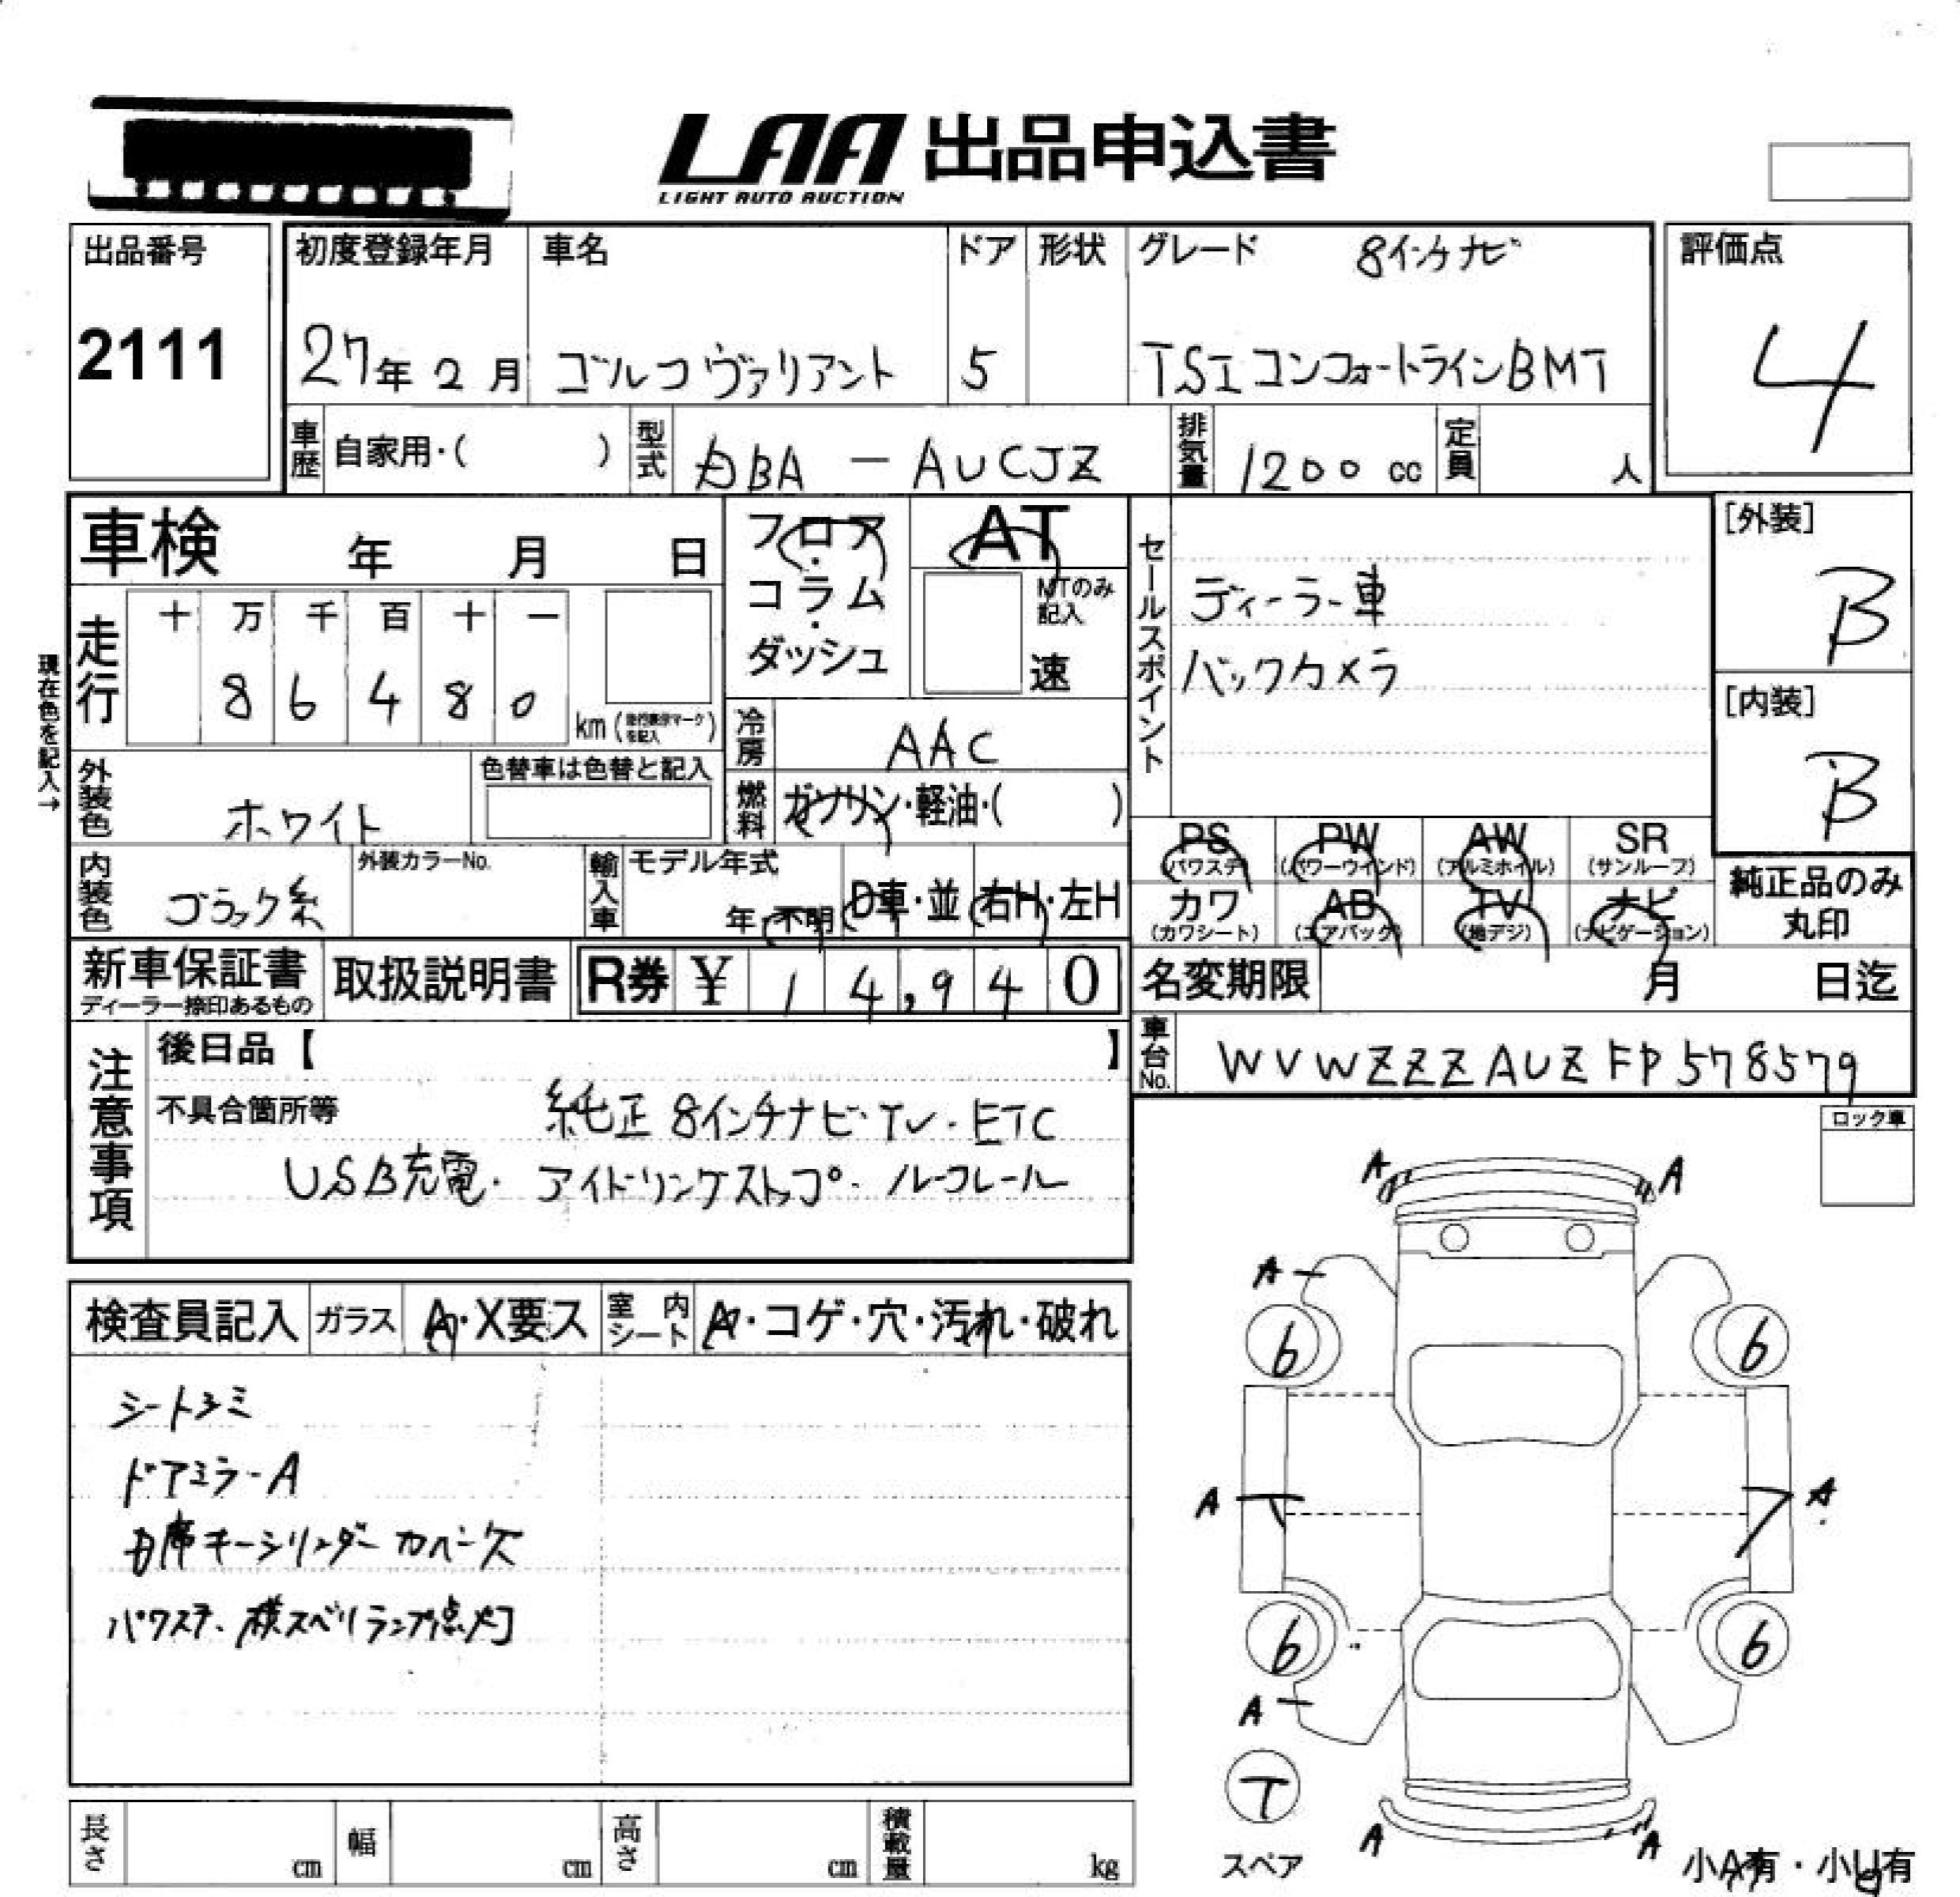 LAA 出品申込書
LIGHT AUTO AUCTION
出品番号
2111
初度登録年月
27年2月
車名
ゴルフ ヴァリアント
ドア
5
形状
グレード 8インチナビ
TSI コンフォートラインBMT
評価点
4
車歴 自家用・( )
型式 DBA － AUCJZ
排気量 1200 cc
定員 人
車検 年 月 日
フロア・コラム・ダッシュ
AT
MTのみ記入
速
セールスポイント
ディーラー車
バックカメラ
[外装]
B
[内装]
B
現在色を記入→
走行
十 万 千 百 十 一
8 6 4 8 0
km (走行表示マークを記入)
冷房 AAC
外装色 ホワイト
色替車は色替と記入
燃料 ガソリン・軽油・( )
PS (パワステ) PW (パワーウインド) AW (アルミホイル) SR (サンルーフ)
カワ (カワシート) AB (エアバック) TV (地デジ) ナビ (ナビゲーション)
純正品のみ丸印
内装色 ブラック系
外装カラーNo.
輸入車 モデル年式
年・不明
D車・並 右H・左H
新車保証書
ディーラー捺印あるもの
取扱説明書
R券 ¥ 14,940
名変期限 月 日迄
車台No. WVWZZZAUZFP578579
注意事項
後日品【 】
不具合箇所等
純正 8インチナビ・TV・ETC
USB充電・アイドリングストップ・ルーフレール
ロック車
検査員記入 ガラス A・X要ス 室内シート A・コゲ・穴・汚れ・破れ
シートシミ
ドアミラーA
D席キーシリンダーカバー欠
パワステ、横スベリランプ点灯
A A
A
6 6
A A
6 6
A
T
スペア
A A
小A有・小U有
長さ cm
幅 cm
高さ cm
積載量 kg